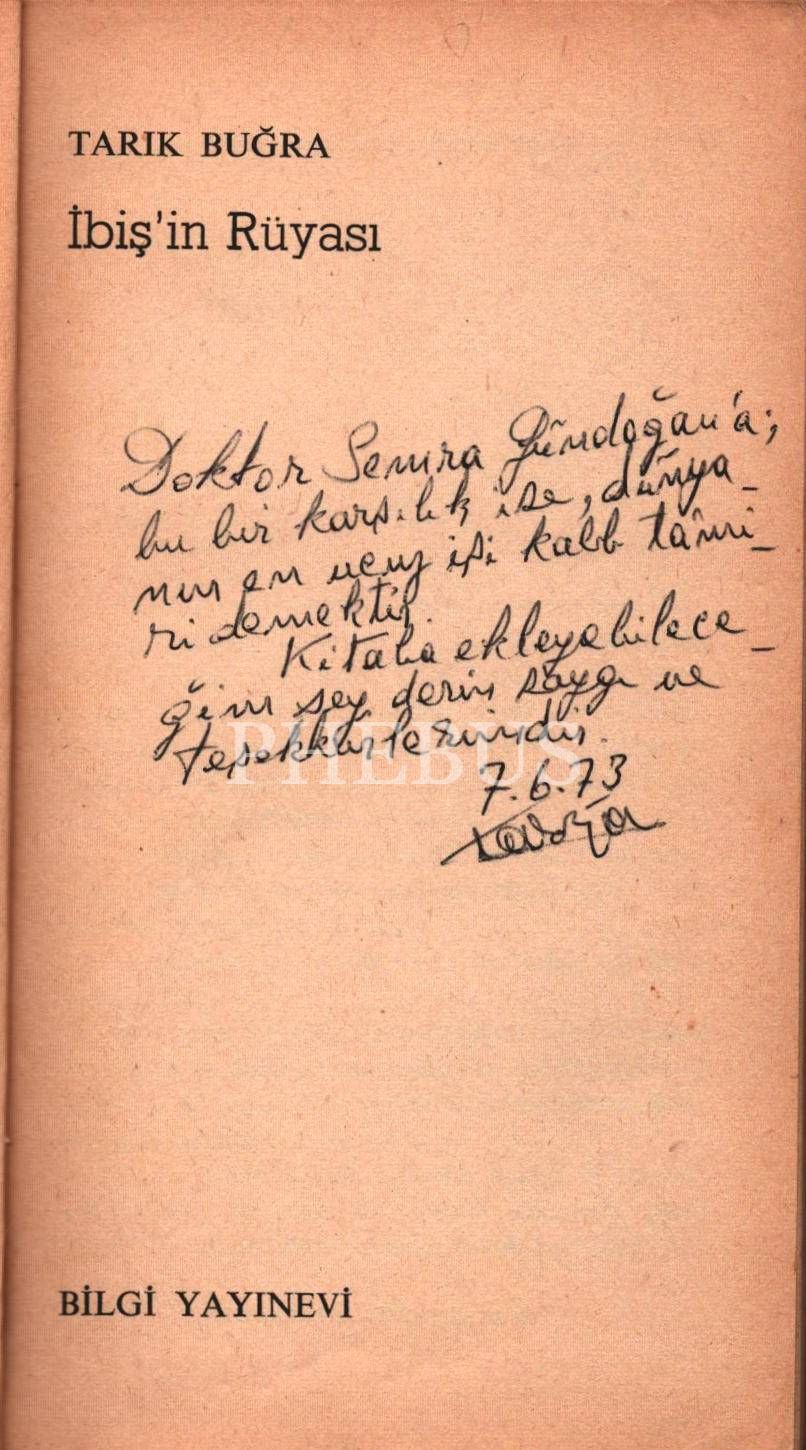 TARIK BUĞRA
İbiş'in Rüyası
Doktor Semra Gündoğan'a;
bu bir karşılık ise, dünya-
nın en ucuz işi kalb tâmi-
ri demektir.
Kitaba ekleyebilece-
ğim şey derin saygı ve
teşekkürlerimdir.
7.6.73
PHEBUS
BİLGİ YAYINEVİ